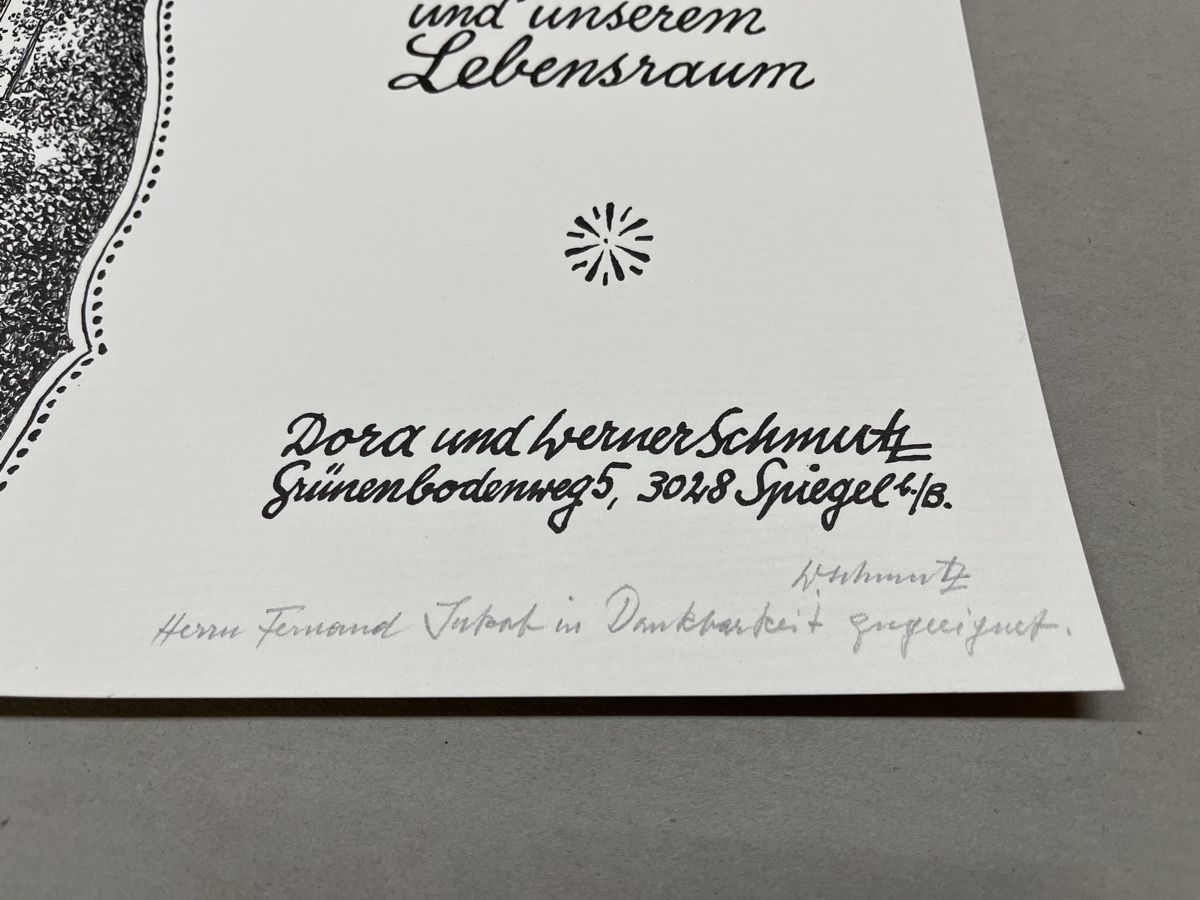 und unserem
Lebensraum
Dora und Werner Schmutz
Grünenbodenweg 5, 3028 Spiegel b./B.
W. Schmutz
Herrn Fernand Jakob in Dankbarkeit zugeeignet.